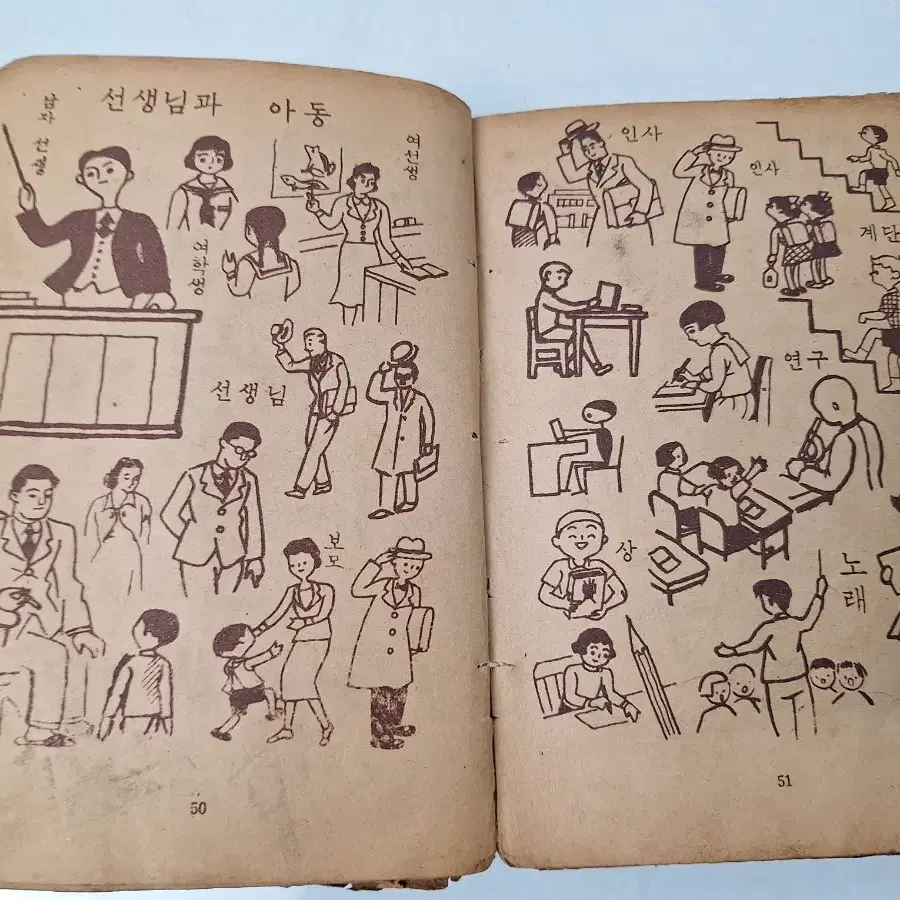 선생님과 아동
남자 선생
여선생
여학생
선생님
보모
50
인사
인사
계단
연구
상
노래
51